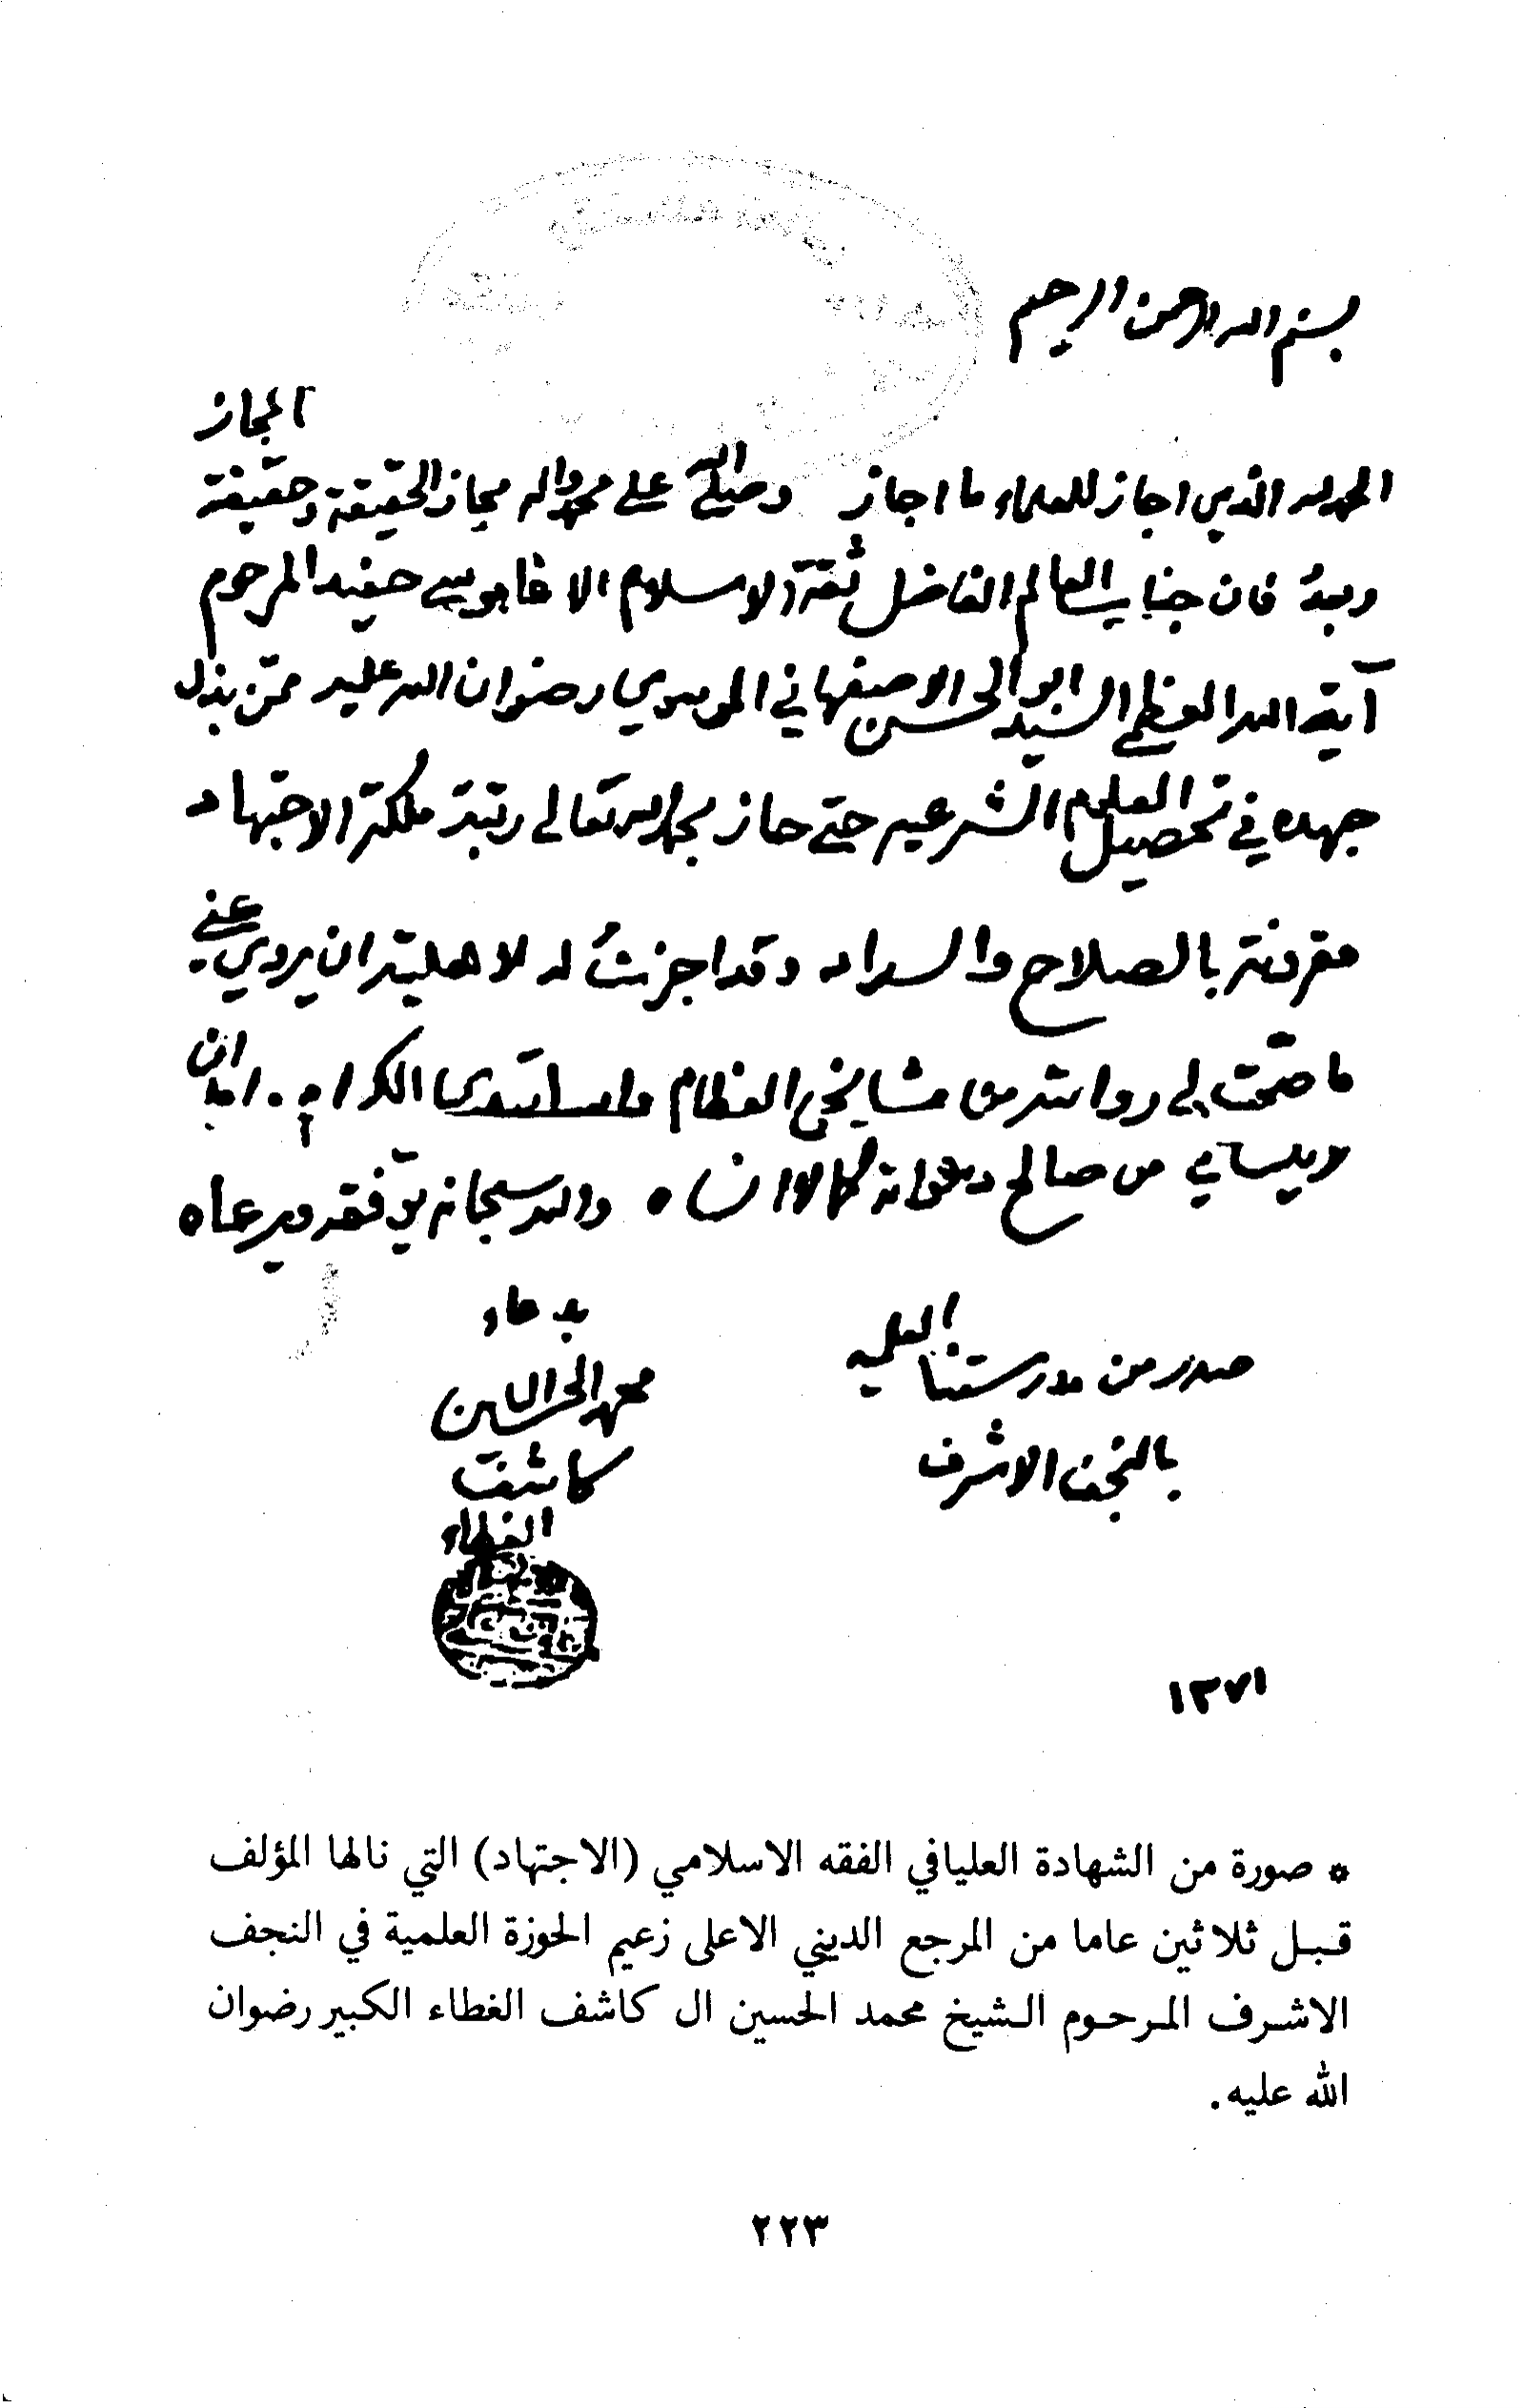 بسم الله الرحمن الرحيم
الحمد لله الذي اجاز للعلماء ما اجاز وصلى الله على محمد واله مجاز الحقيقة وحقيقة المجاز
وبعدُ فان جناب العالم الفاضل ثقة الاسلام الاقا موسى حفيد المرحوم
آية الله العظمى السيد ابو الحسن الاصفهاني الموسوي رضوان الله عليه ممّن بذل
جهده في تحصيل العلوم الشرعيه حتى حاز بحمد الله تعالى رتبة ملكة الاجتهاد
مقرونة بالصلاح والسداد وقد اجزتُ له لاهليته ان يروي عني
ما صحت لي روايته من مشايخي العظام واساتيدي الكرام. راجيا ان
لا ينساني من صالح دعواته كما لا انساه والله سبحانه يوفقه ويرعاه
بدعاء
صدر من مدرستنا العلميه
محمد الحسين
بالنجف الاشرف
كاشف
الغطاء
١٣٧١
* صورة من الشهادة العليافي الفقه الاسلامي (الاجتهاد) التي نالها المؤلف
قبل ثلاثين عاما من المرجع الديني الاعلى زعيم الحوزة العلمية في النجف
الاشرف المرحوم الشيخ محمد الحسين ال كاشف الغطاء الكبير رضوان
الله عليه.
٢٢٣